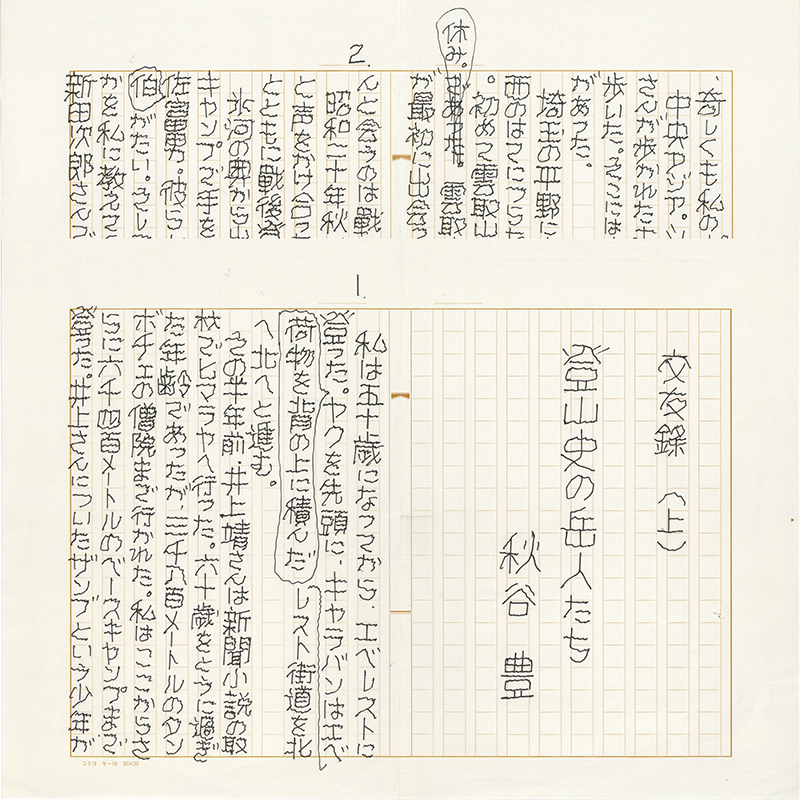 2.
、奇しくも私の
中央アジア。シ
さんが歩かれた
歩いた。そこには
があった。
埼玉の平野に
西のはてにつら
。初めて雲取山
休み。であった。雲取
が最初に出会う
んと会うのは戦
昭和二十年秋
と声をかけ合っ
とともに戦後登
氷河の奥から出
キャンプで手を
彼ら
伯がたい。そし
かを私に教えて
新田次郎さんが
1.
交友録（上）
登山史の岳人たち
秋谷 豊
私は五十歳になってから、エベレストに
登った。ヤクを先頭に、キャラバンはエベ
荷物を背の上に積んだ レスト街道を北
へ北へと進む。
その半年前、井上靖さんは新聞小説の取
材でヒマラヤへ行った。六十歳をとうに過ぎ
た年齢であったが、三千八百メートルのタン
ボチェの僧院まで行かれた。私はここからさ
らに六千四百メートルのベースキャンプまで
登った。井上さんについたザンブという少年が
コクヨ ケー10 20×20